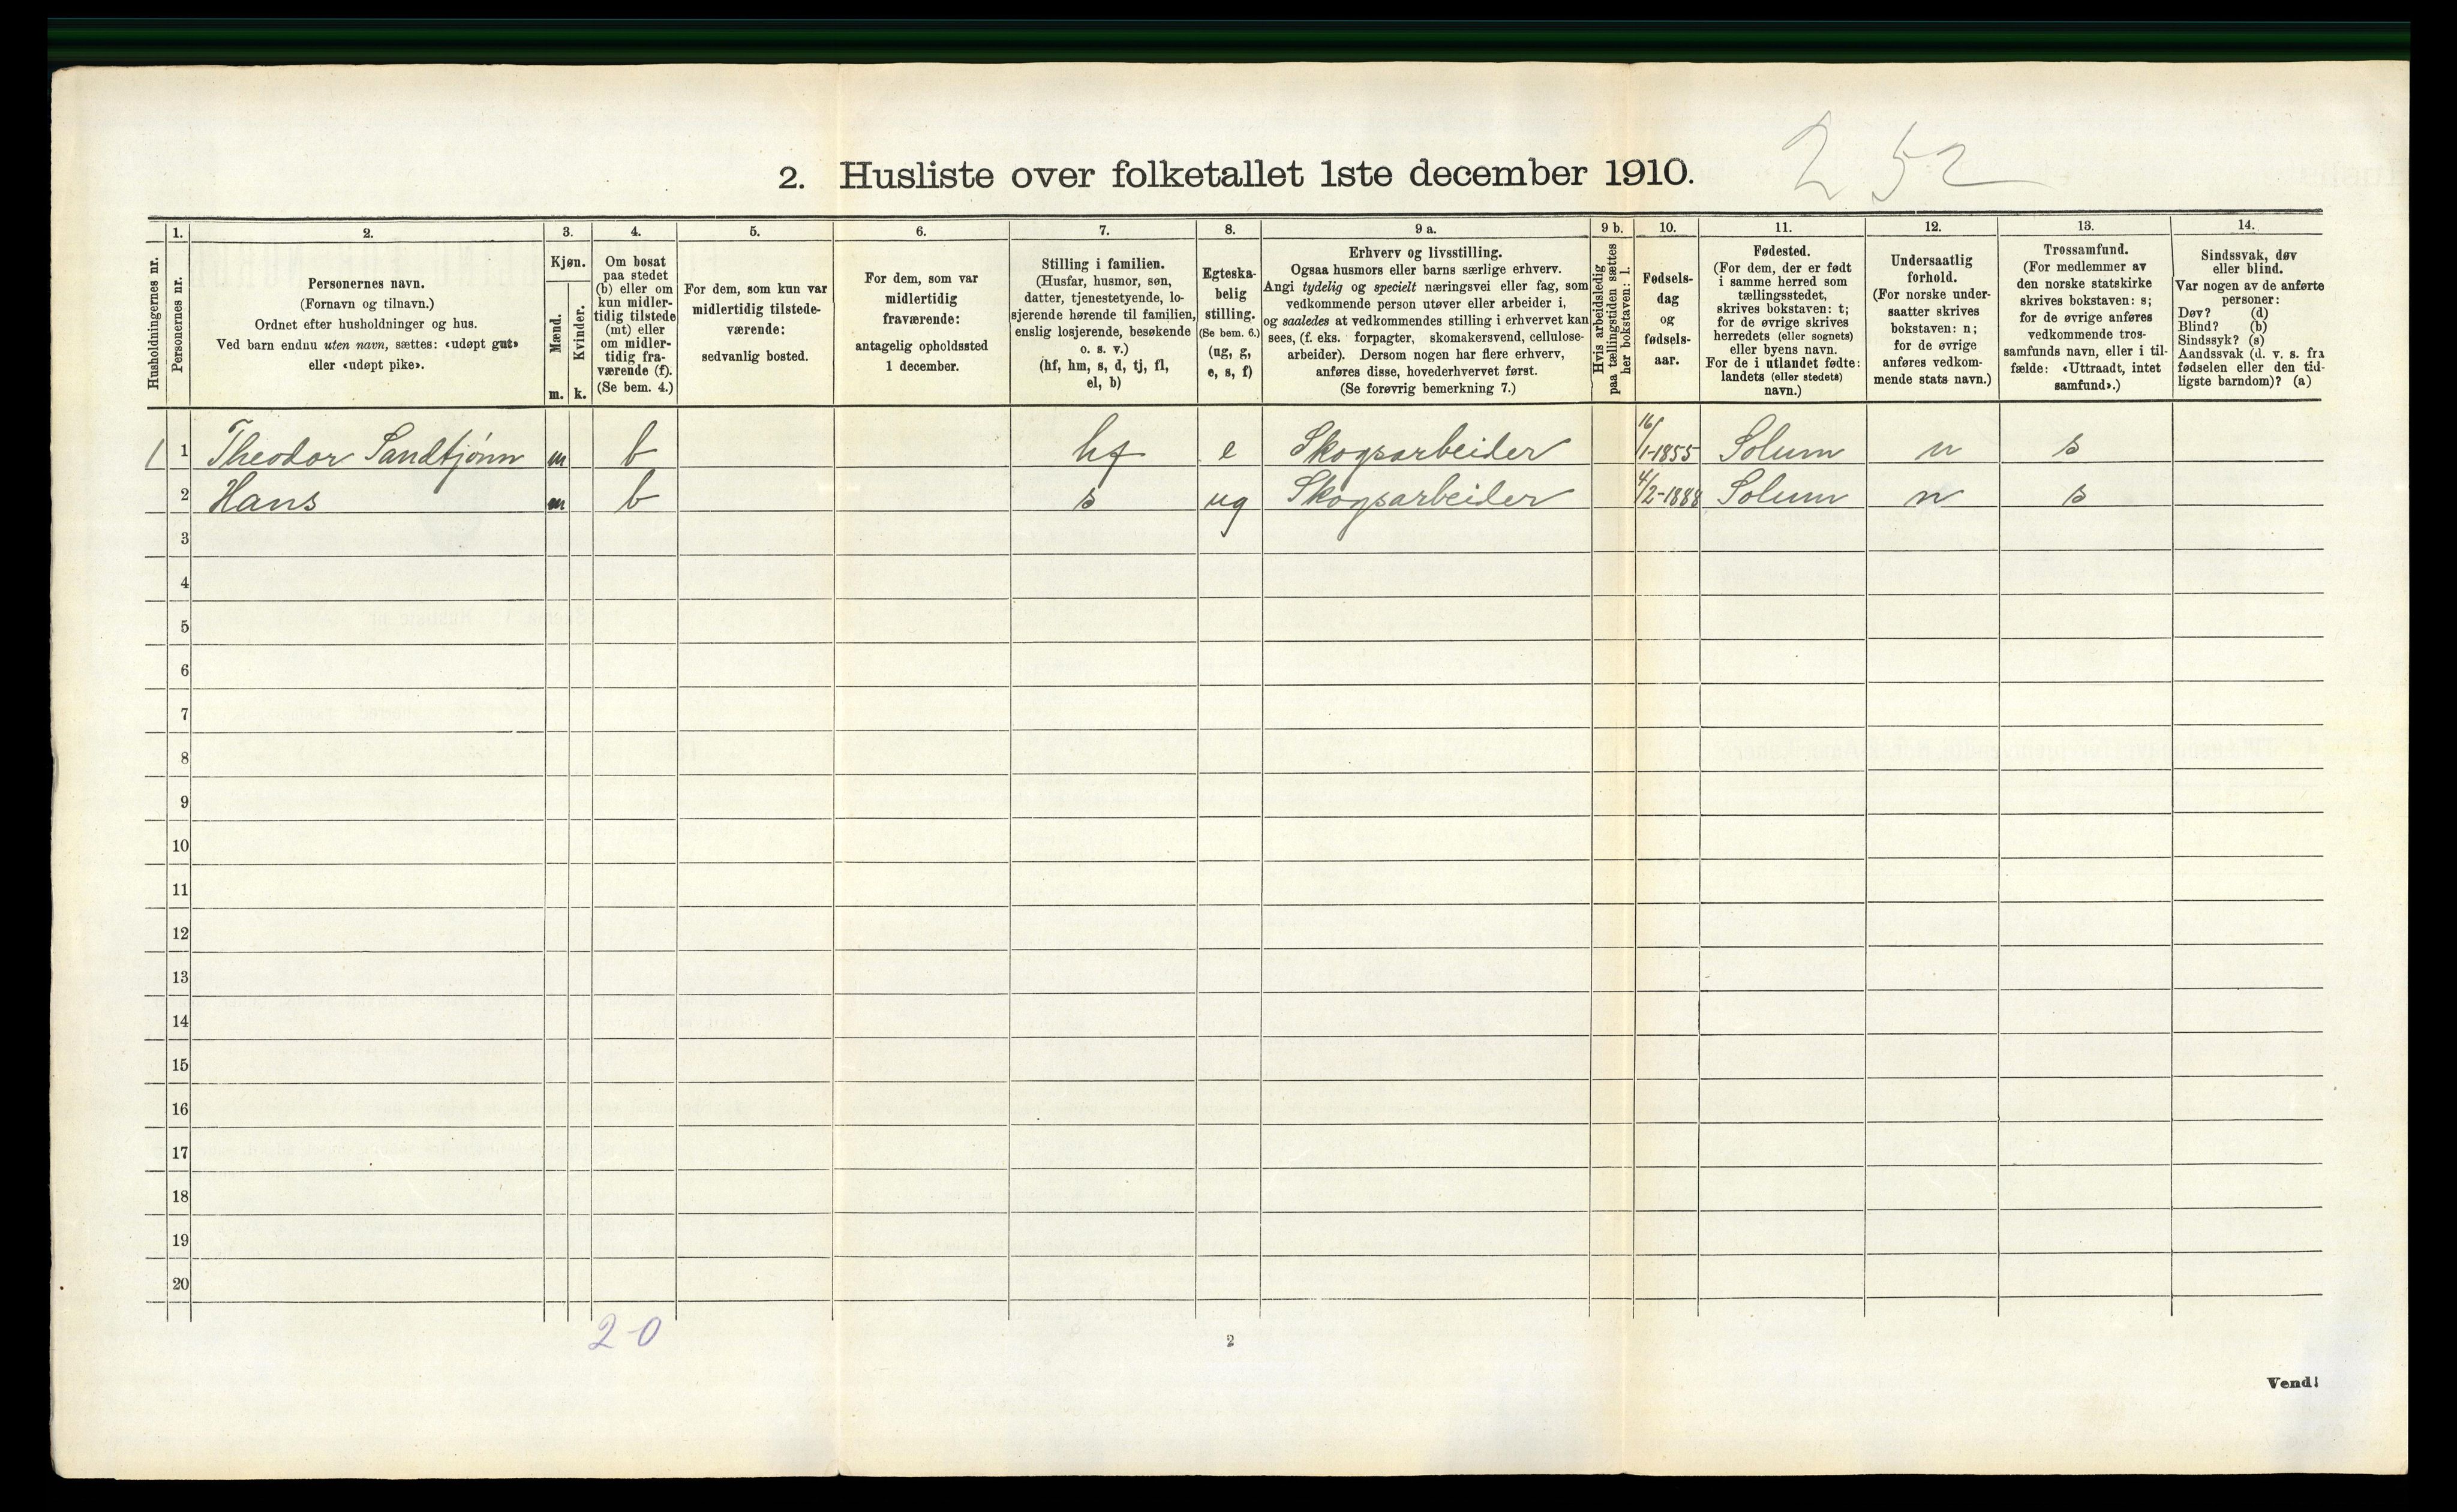 2. Husliste over folketallet 1ste december 1910.
252
Husholdningernes nr.
1.
Personernes nr.
2.
Personernes navn.
(Fornavn og tilnavn.)
Ordnet efter husholdninger og hus.
Ved barn endnu uten navn, sættes: «udøpt gut»
eller «udøpt pike».
3.
Kjøn.
Mænd.
Kvinder.
m. k.
4.
Om bosat
paa stedet
(b) eller om
kun midler-
tidig tilstede
(mt) eller
om midler-
tidig fra-
værende (f).
(Se bem. 4.)
5.
For dem, som kun var
midlertidig tilstede-
værende:
sedvanlig bosted.
6.
For dem, som var
midlertidig
fraværende:
antagelig opholdssted
1 december.
7.
Stilling i familien.
(Husfar, husmor, søn,
datter, tjenestetyende, lo-
sjerende hørende til familien,
enslig losjerende, besøkende
o. s. v.)
(hf, hm, s, d, tj, fl,
el, b)
8.
Egteska-
belig
stilling.
(Se bem. 6.)
(ug, g,
e, s, f)
9 a.
Erhverv og livsstilling.
Ogsaa husmors eller barns særlige erhverv.
Angi tydelig og specielt næringsvei eller fag, som
vedkommende person utøver eller arbeider i,
og saaledes at vedkommendes stilling i erhvervet kan
sees, (f. eks. forpagter, skomakersvend, cellulose-
arbeider). Dersom nogen har flere erhverv,
anføres disse, hovederhvervet først.
(Se forøvrig bemerkning 7.)
9 b.
Hvis arbeidsledig
paa tællingstiden sættes
her bokstaven: l.
10.
Fødsels-
dag
og
fødsels-
aar.
11.
Fødested.
(For dem, der er født
i samme herred som
tællingsstedet,
skrives bokstaven: t;
for de øvrige skrives
herredets (eller sognets)
eller byens navn.
For de i utlandet fødte:
landets (eller stedets)
navn.)
12.
Undersaatlig
forhold.
(For norske under-
saatter skrives
bokstaven: n;
for de øvrige
anføres vedkom-
mende stats navn.)
13.
Trossamfund.
(For medlemmer av
den norske statskirke
skrives bokstaven: s;
for de øvrige anføres
vedkommende tros-
samfunds navn, eller i til-
fælde: «Uttraadt, intet
samfund».)
14.
Sindssvak, døv
eller blind.
Var nogen av de anførte
personer:
Døv? (d)
Blind? (b)
Sindssyk? (s)
Aandssvak (d. v. s. fra
fødselen eller den tid-
ligste barndom)? (a)
1 1 Theodor Sandtjónn m b hf e Skogsarbeider 16/1-1855 Solum n s
2 Hans m b s ug Skogsarbeider 4/2-1888 Solum n s
3
4
5
6
7
8
9
10
11
12
13
14
15
16
17
18
19
20
2-0
2
Vend!